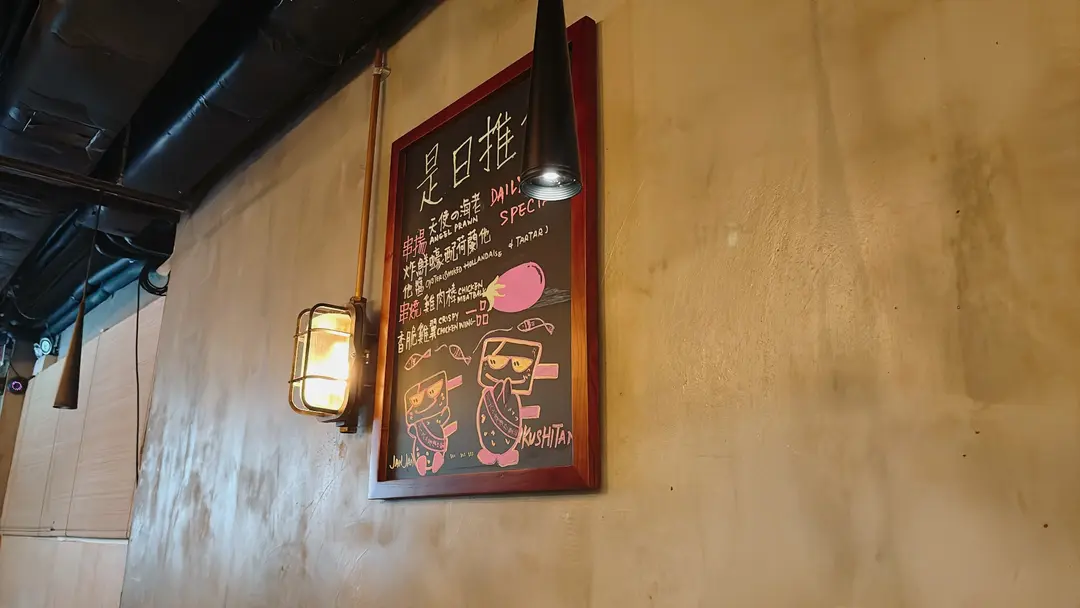 是日推
DAILY
SPECIA
天使の海老
ANGEL PRAWN
串揚
炸鮮蠔配荷蘭他
他醬 OYSTER (SMOKED HOLLANDAISE & TARTAR)
串燒 雞肉棒 CHICKEN MEATBALL
香脆雞翼 CRISPY CHICKEN WING 一品
KUSHITA